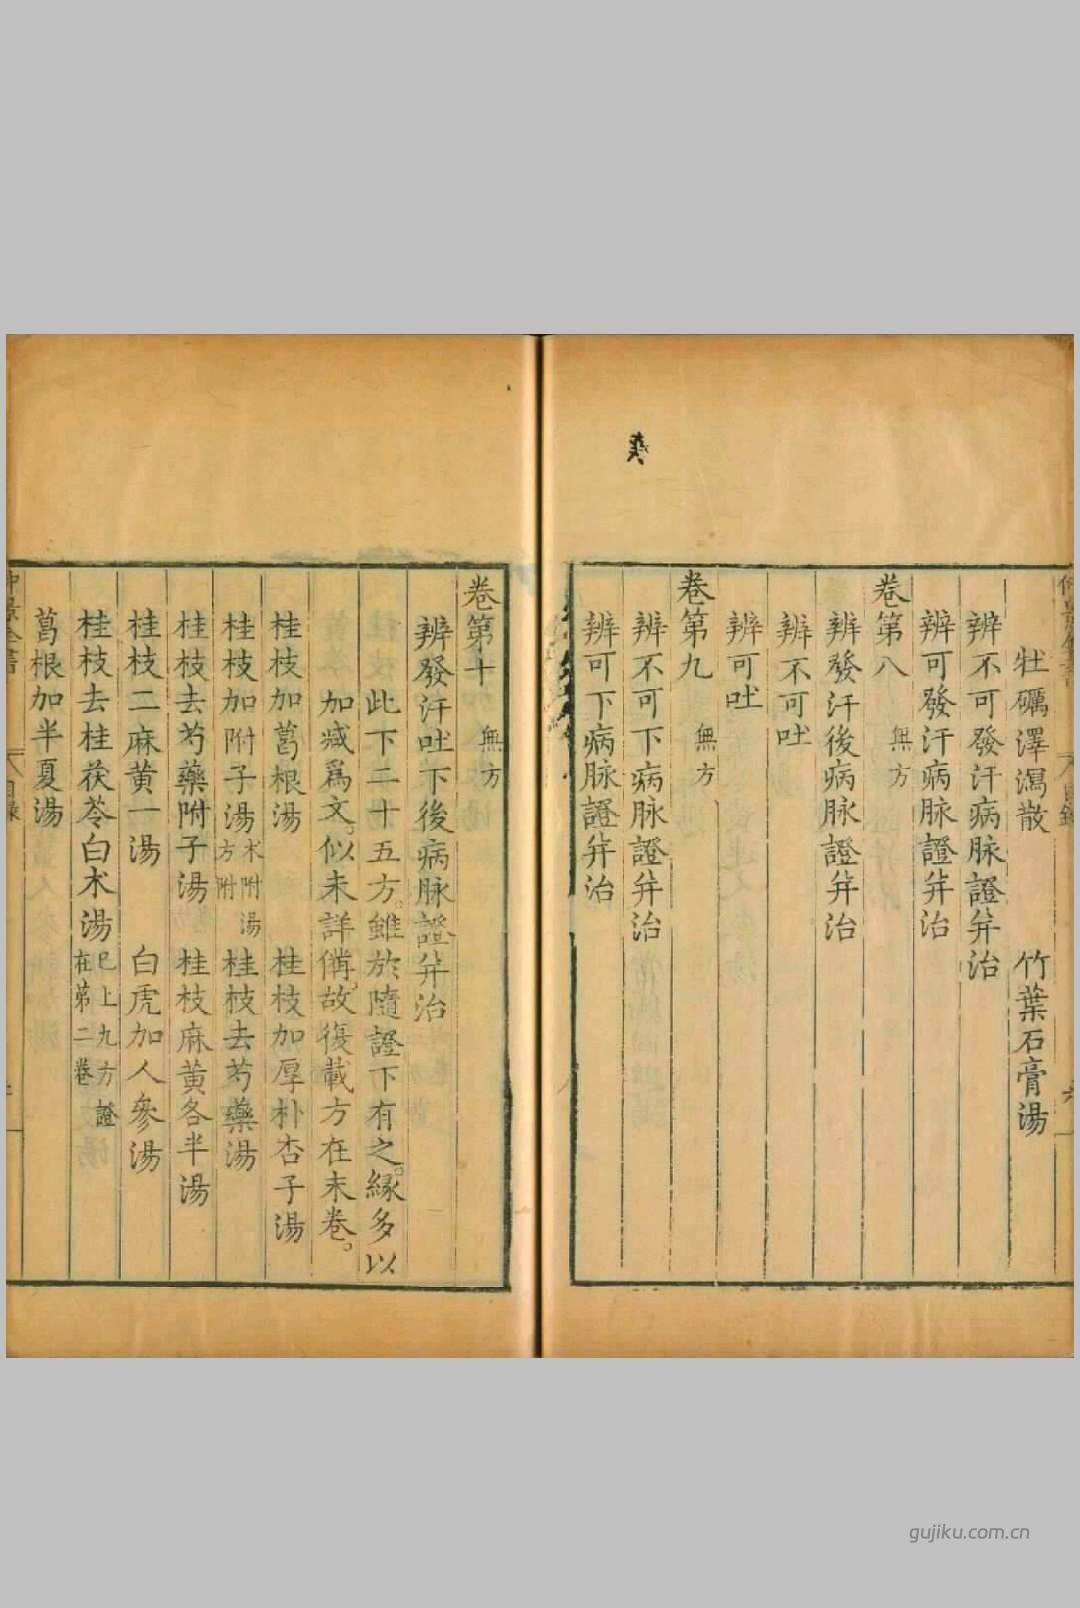 牡礪澤瀉散 竹葉石膏湯
辨不可發汗病脉證并治
辨可發汗病脉證并治
卷第八 無方
辨發汗後病脉證并治
辨不可吐
辨可吐
卷第九 無方
辨不可下病脉證并治
辨可下病脉證并治
卷第十 無方
辨發汗吐下後病脉證并治
此下二十五方。雖於隨證下有之。緣多以
加减爲文。似未詳備。故復載方在末卷。
桂枝加葛根湯 桂枝加厚朴杏子湯
桂枝加附子湯 术附湯方附 桂枝去芍藥湯
桂枝去芍藥附子湯 桂枝麻黄各半湯
桂枝二麻黄一湯 白虎加人參湯
桂枝去桂茯苓白术湯 已上九方證在第二卷
葛根加半夏湯
gujiku.com.cn